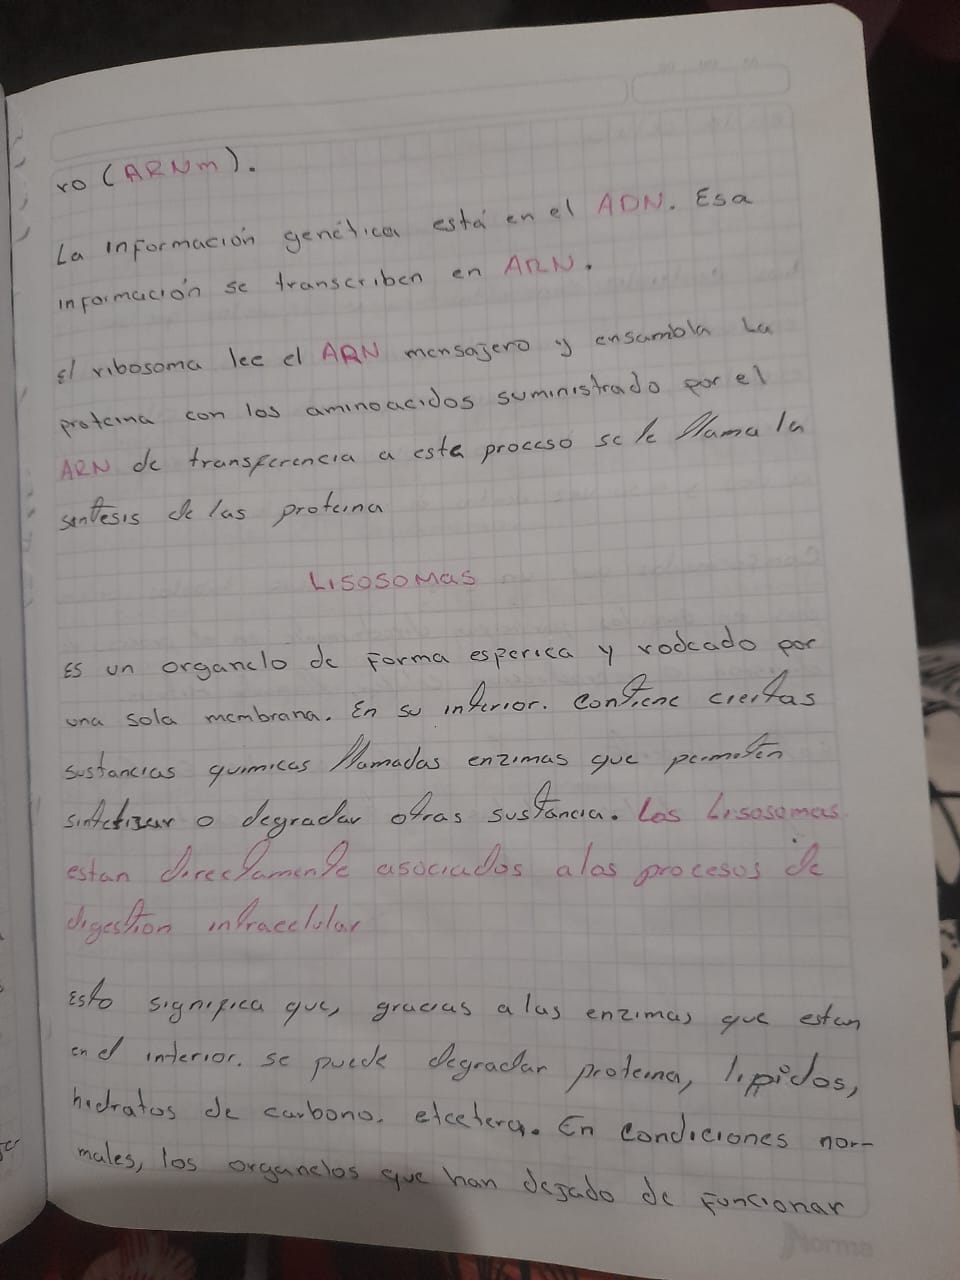 ro (ARNm).
La información genética está en el ADN. Esa
información se transcriben en ARN.
El ribosoma lee el ARN mensajero y ensambla La
proteina con los aminoacidos suministrado por el
ARN de transferencia a este proceso se le llama la
sintesis de las proteina
LISOSOMAS
Es un organelo de forma esperica y rodeado por
una sola membrana. En su interior. contiene ciertas
sustancias quimicas llamadas enzimas que permiten
sintetizar o degradar otras sustancia. Los Lisosomas
estan directamente asociados a los procesos de
digestion intracelular
Esto significa que, gracias a las enzimas que estan
en el interior. se puede degradar proteina, lipidos,
hidratos de carbono. etcetera. En condiciones nor-
males, los organelos que han dejado de funcionar
Norma